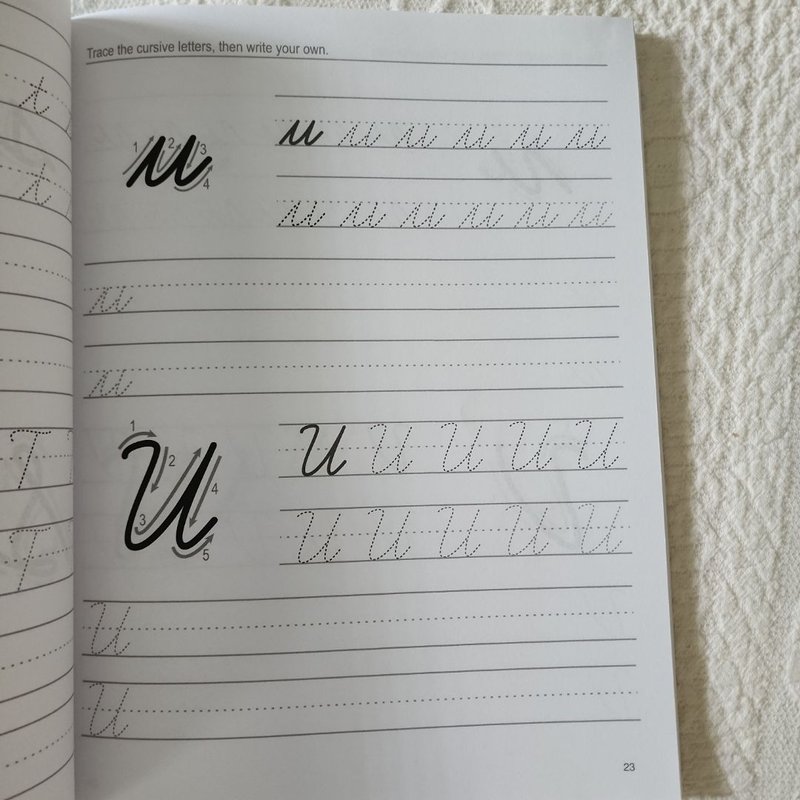 t
t
T
T
Trace the cursive letters, then write your own.
1 2 3 4
u
u u u u u u
u u u u u u
u
u
1 2 3 4 5
U
U U U U U
U U U U U
U
U
23